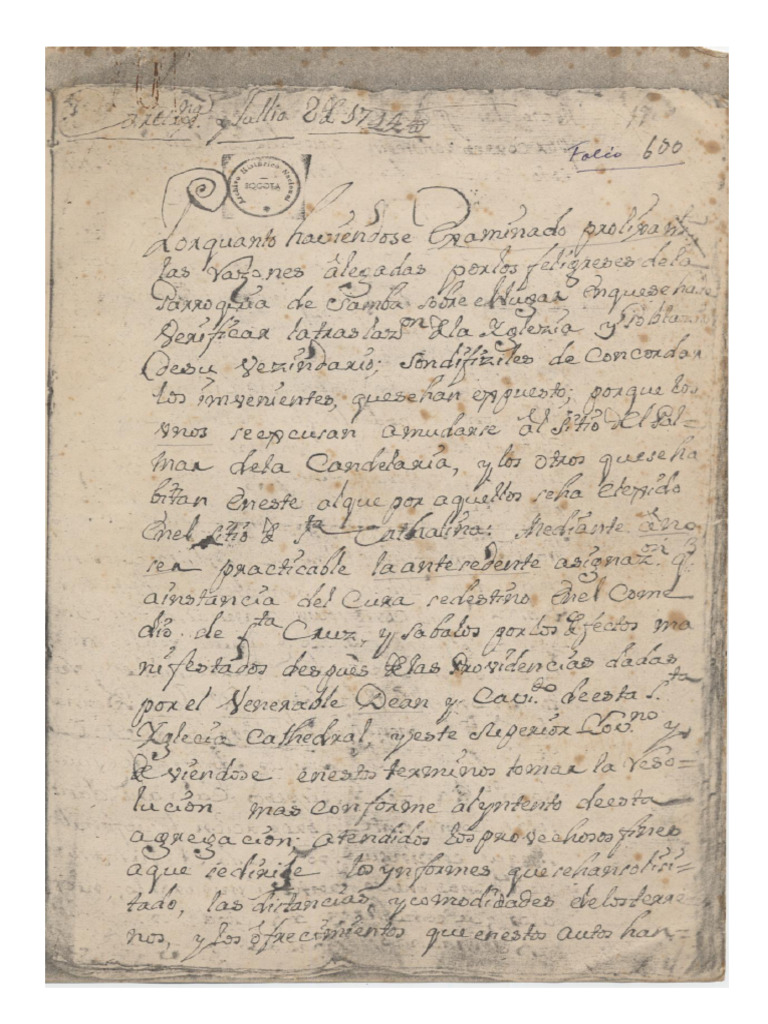 Jullio 8 de 1744
Folio 600
Archivo Histórico Nacional
BOGOTA
Porquanto haviendose Examinado prolixamte
las Razones alegadas porlos feligreses dela
Parroquia de Samba sobre ellugar enqueseha de
Verificar latraslazon dela Yglezia y Poblazon
Desu Vezindario; son difiziles de Concordar
los imvenientes, quesehan expuesto; porque los
Vnos seexcusan amudarse al sitio del Pal=
mar dela Candelaria, y los otros queseha
bitan eneste alque por aquellos seha elexido
enel sitio de Sta Cathalina: Mediante âno
ser practicable laantesedente asignazon q.
ainstancia del Cura sedestino enel Come
dio de Sta Cruz, y sabalos por los efectos ma
nifestados despues delas Providencias dadas
por el Venerable Dean y Cavido deesta Sta
Yglecia Cathedral, yeste Superior Govno y
deviendose enestos terminos tomar la reso=
lucion mas conforme alyntento deesta
agregacion; atendidos losprovechosos fines
aque sedirije los ynformes quesehansolisi=
tado, las distancias, ycomodidades delosterre
nos, y los ofrecimientos que enestos autos han=